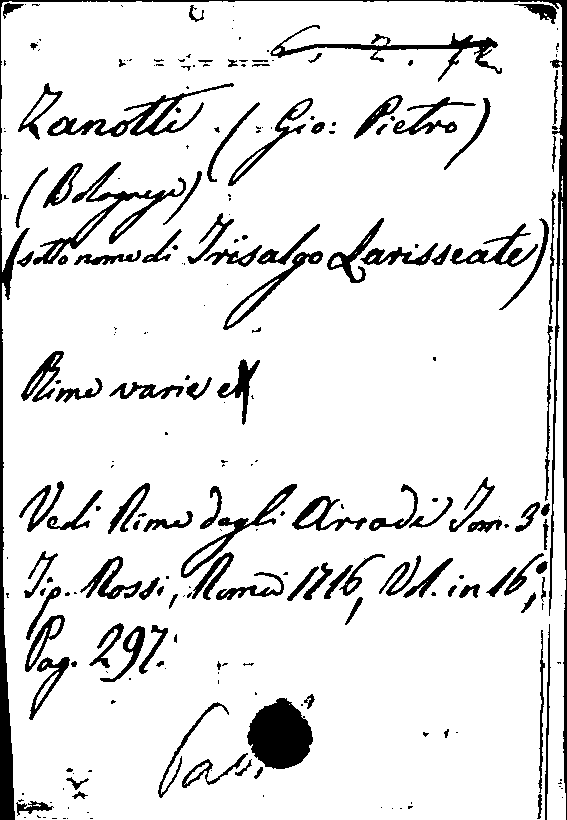 6. 2. 72
Zanotti (Gio: Pietro)
(Bolognese)
(sotto nome di Trisalgo Larisseate)
Rime varie
Vedi Rime degli Arcadi Tom. 3º
Tip. Rossi, Roma 1716, Vol. in 16º,
Pag. 297.